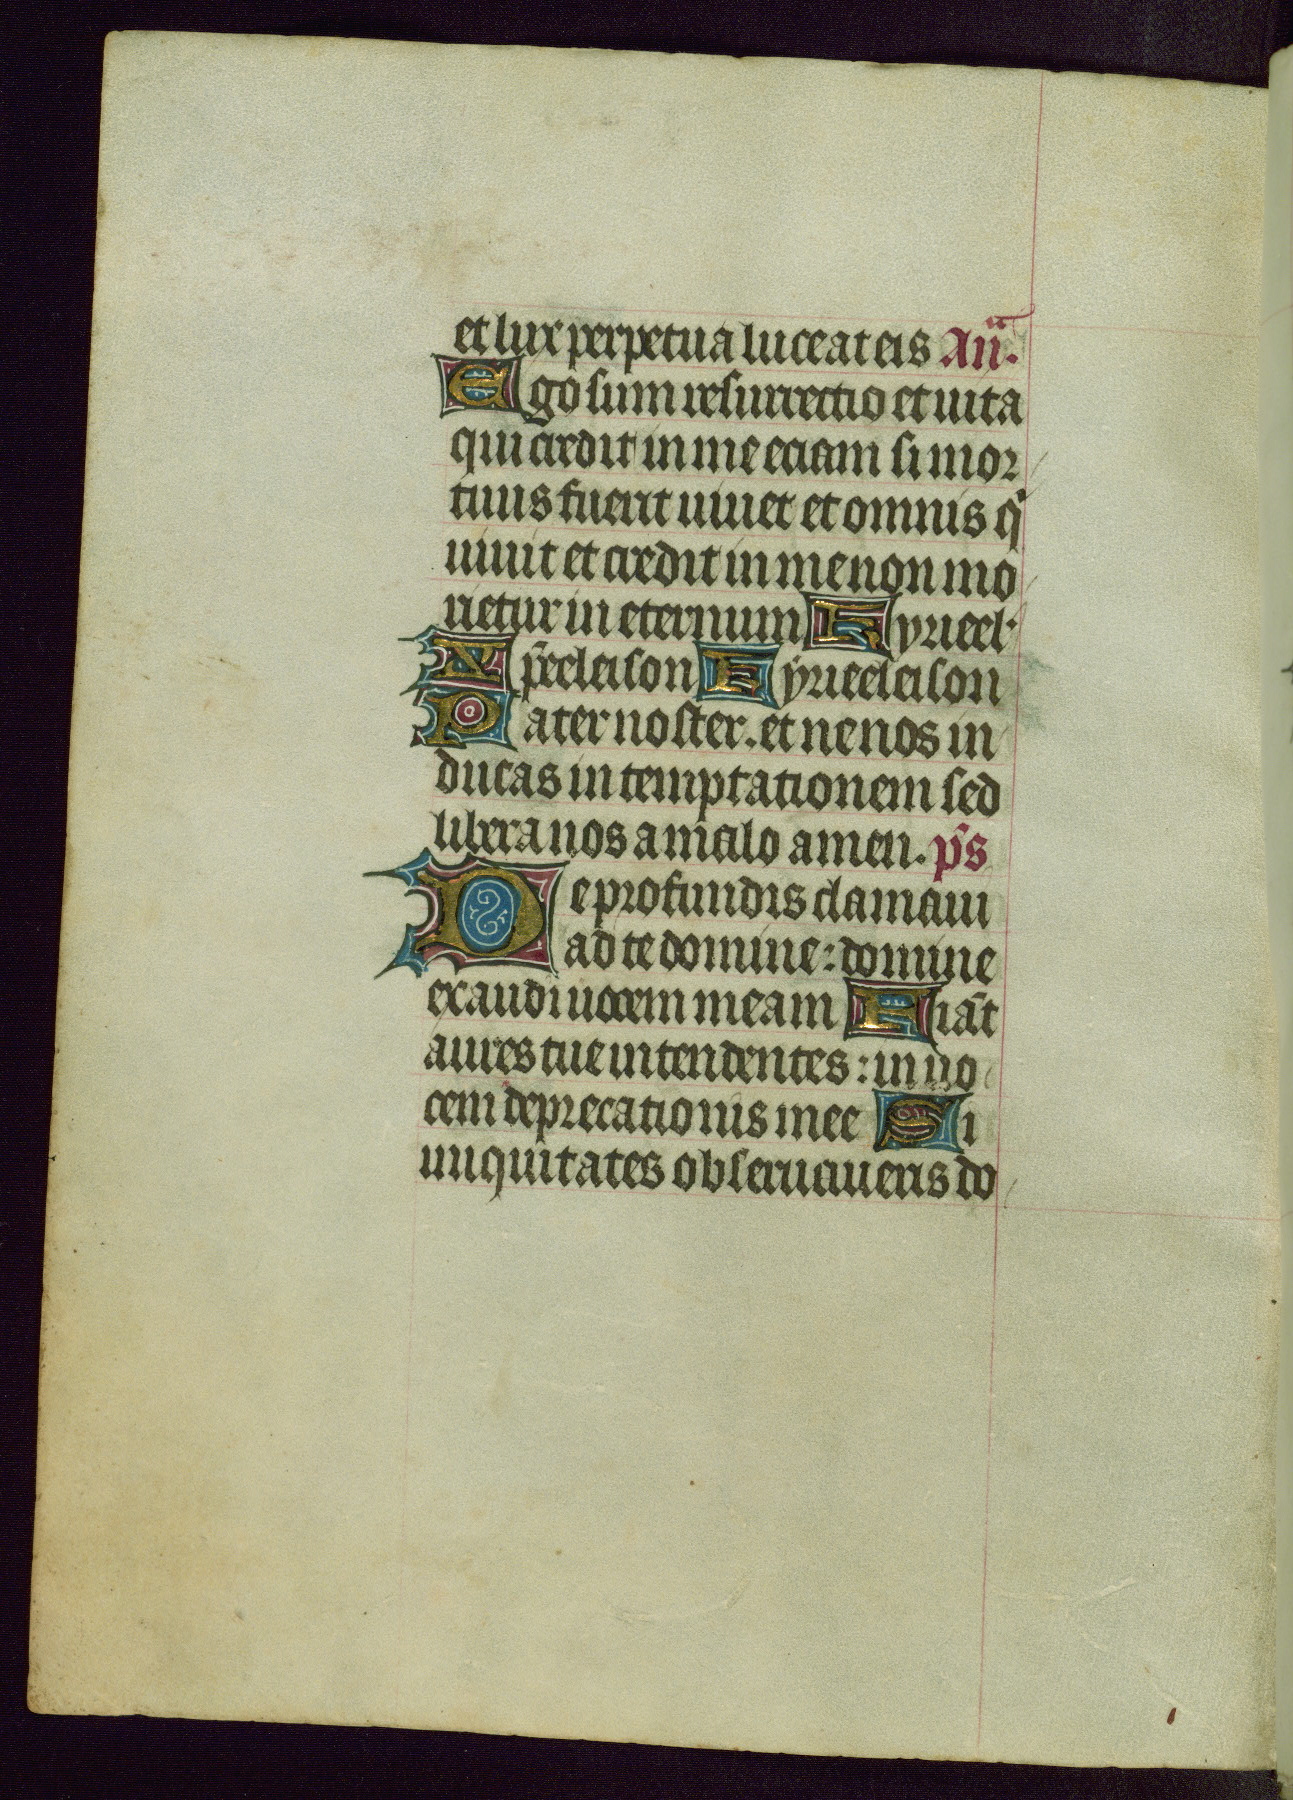 et lux perpetua luceat eis Añ.
Ego sum resurrectio et uita
qui credit in me eciam si mor
tuus fuerit uiuet et omnis qͥ
uiuit et credit in me non mo
rietur in eternum Kyrieel.
Xp̄eeleison Kyrieeleison
Pater noster. et ne nos in
ducas in temptationem sed
libera nos a malo amen. ps̄
De profundis clamaui
ad te domine: domine
exaudi uocem meam Fiāt
aures tue intendentes: in uo
cem deprecationis mee Si
iniquitates obseruaueris do